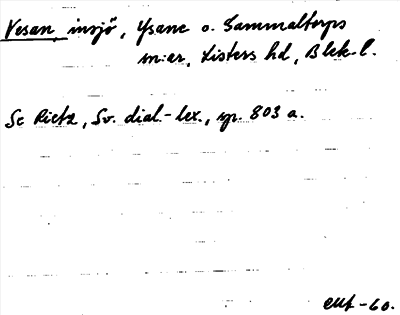 Vesan, insjö, Ysane o. Gammaltorps
sn:ar, Listers hd, Blek. l.
Se Rietz, Sv. dial.-lex., sp. 803 a.
-60.